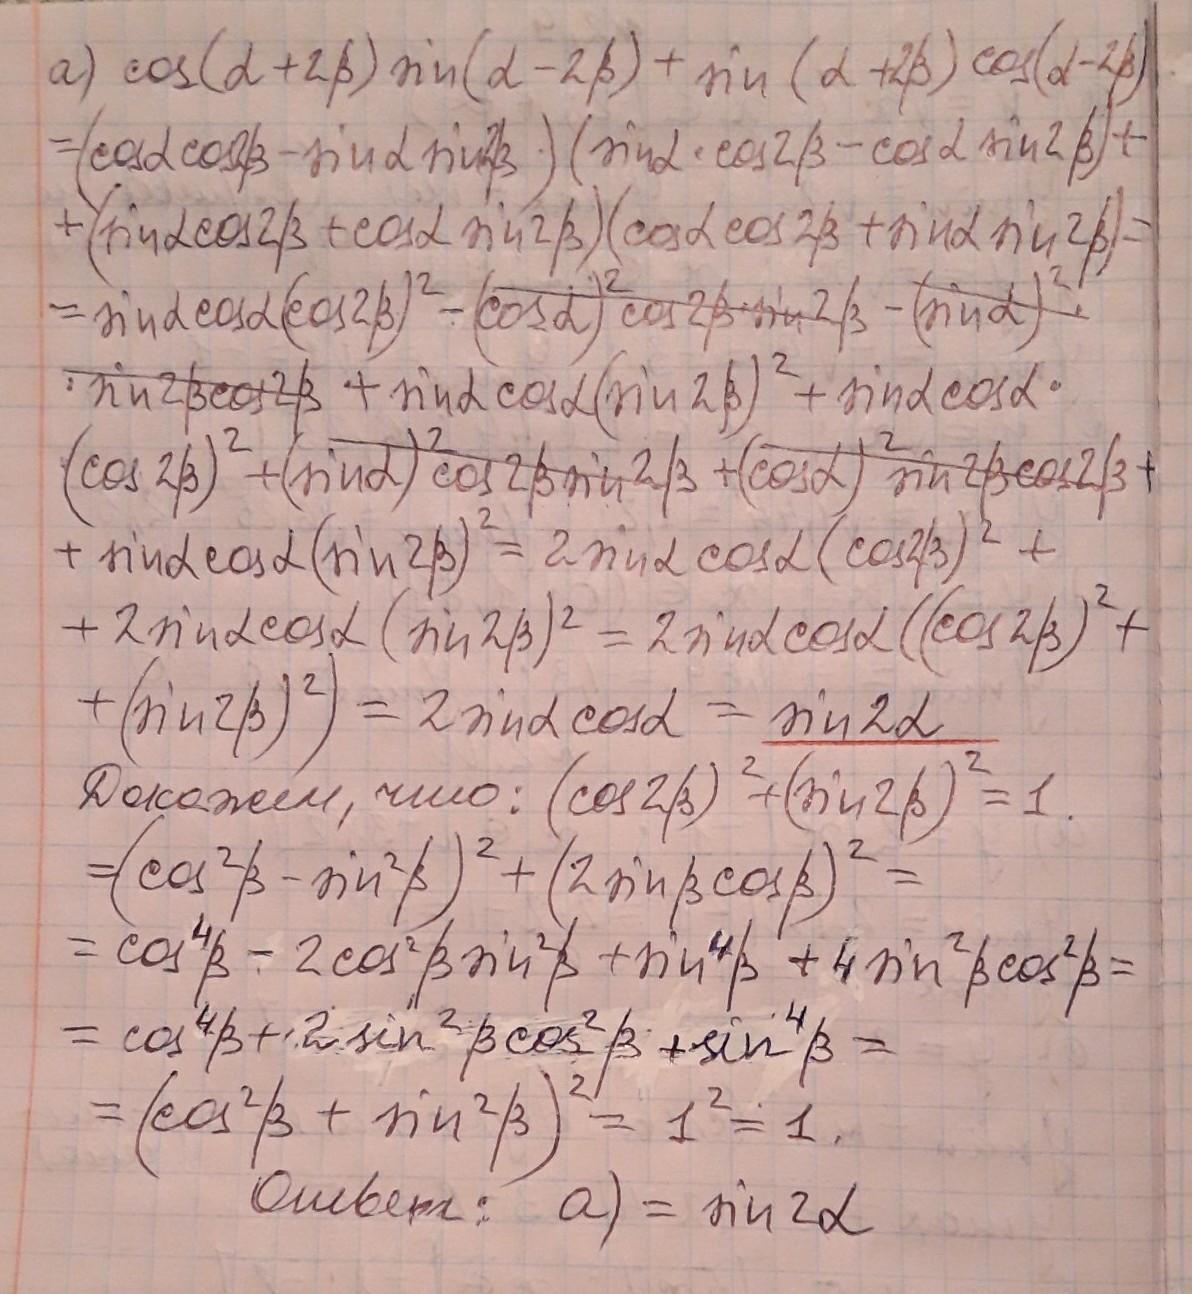 а) cos(α+2β) sin(α-2β) + sin(α+2β) cos(α-2β)
=(cosα cos2β - sinα sin2β·)(sinα·cos2β - cosα sin2β)+
+(sinα cos2β + cosα sin2β)(cosα cos2β + sinα sin2β)=
= sinα cosα(cos2β)² - (cosα)² cos2β·sin2β - (sinα)²·
·sin2β cos2β + sinα cosα(sin2β)² + sinα cosα·
(cos2β)² + (sinα)² cos2β sin2β + (cosα)² sin2β cos2β +
+ sinα cosα(sin2β)² = 2sinα cosα(cos2β)² +
+ 2sinα cosα(sin2β)² = 2sinα cosα((cos2β)² +
+ (sin2β)²) = 2sinα cosα = sin2α
Докажем, что: (cos2β)² + (sin2β)² = 1.
=(cos²β - sin²β)² + (2sinβ cosβ)² =
= cos⁴β - 2cos²β sin²β + sin⁴β + 4sin²β cos²β =
= cos⁴β + 2 sin²β cos²β + sin⁴β =
= (cos²β + sin²β)² = 1² = 1.
Ответ: а) = sin2α